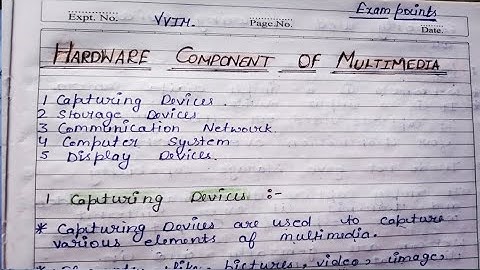 Exam points
Expt. No. VVIM. Page No.
Date.
HARDWARE COMPONENT OF MULTIMEDIA
1 Capturing Devices.
2 Storage Devices
3 Communication Network.
4 Computer System
5 Display Devices.
1 Capturing Devices :-
* Capturing Devices are used to capture
various elements of multimedia.
like pictures, video, image,